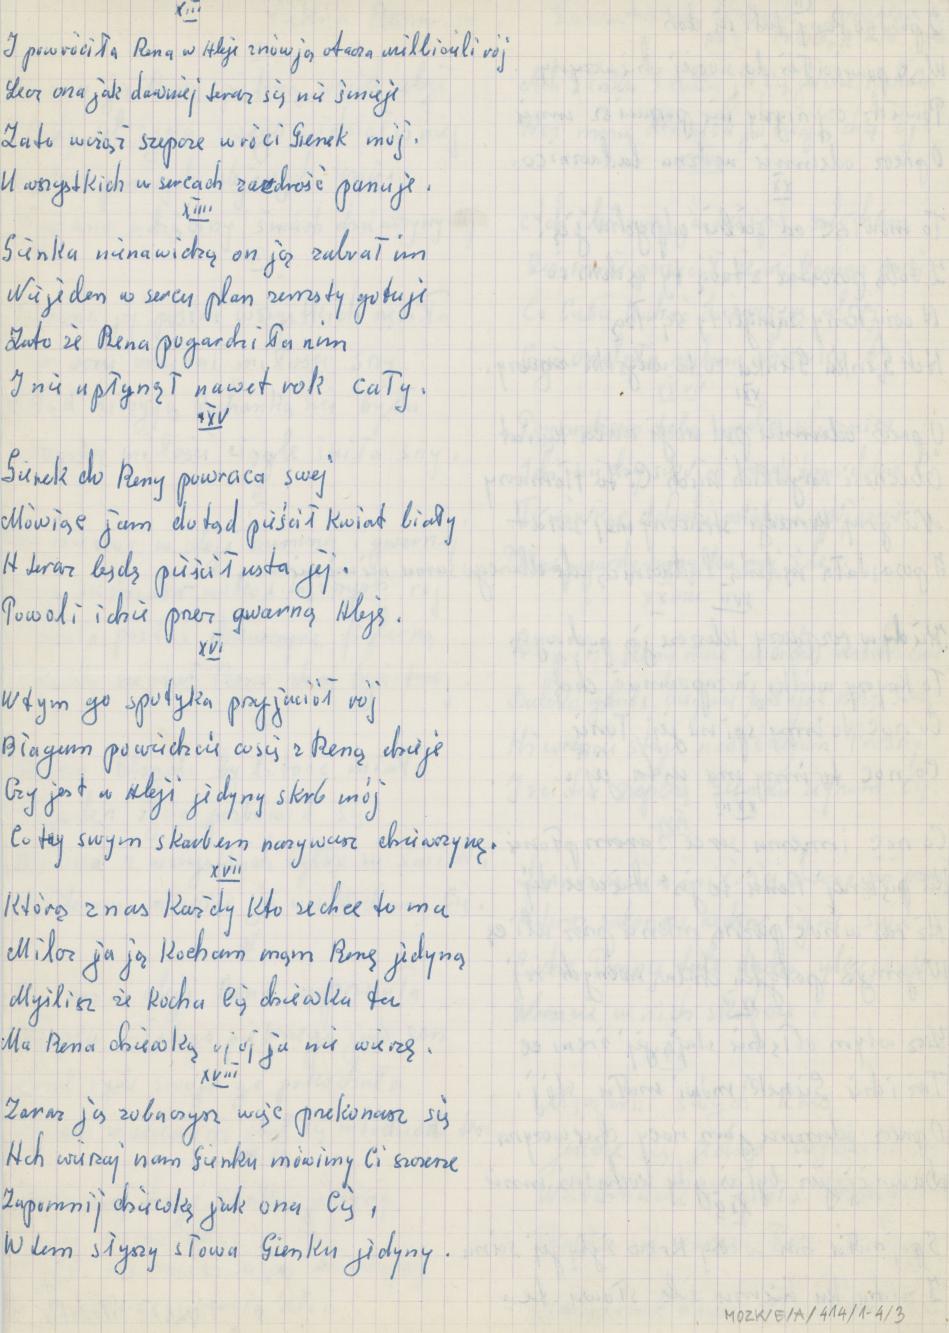 XIII
I powróciła Rena w Aleje znów ją otacza wielbicieli rój
Lecz ona jak dawniej teraz się nie śmieje
Zato wciąż szepcze wróci Gienek mój.
U wszystkich w sercach zazdrość panuje.
XIIII
Gienka nienawidzą on ją zabrał im
Niejeden w sercu plan zemsty gotuje
Zato że Rena pogardziła nim
I nie upłynął nawet rok cały.
XXV
Gienek do Reny powraca swej
Mówiąc jam dotąd pieścił kwiat biały
A teraz będę pieścił usta jej.
Powoli idzie przez gwarną Aleję.
XVI
Wtym go spotyka przyjaciół rój
Błagam powiedzcie cosię z Reną dzieje
Czy jest w Aleji jedyny skrb mój
Co ty swym skarbem nazywasz dziewczynę.
XVII
Którą z nas każdy kto zechce to ma
Milcz ja ją kocham mąm Renę jedyną
Myślisz że kocha Cię dziewka ta
Ma Rena dziewką oj oj ja nie wierzę.
XVIII
Zaraz ją zobaczysz więc prekonasz się
Ach wierzaj nam Gienku mówimy Ci szczerze
Zapomnij dziewkę jak ona Cię,
Wtem słyszy słowa Gienku jedyny.
MOZK/E/A/414/1-4/3